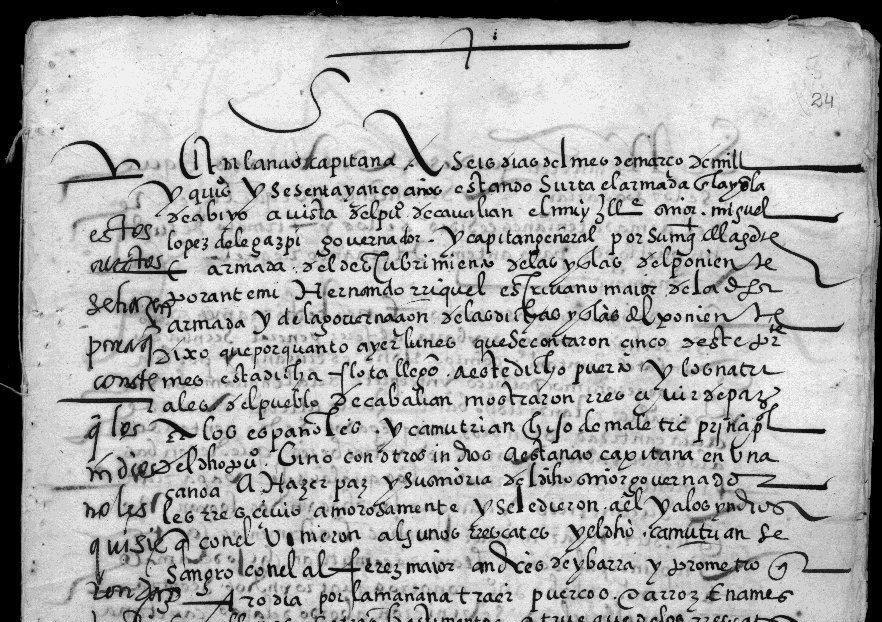 24
En la nao capitana A seis dias del mes de março de mill
y quiºs y sesenta y cinco años estando surta el armada en la ysla
de abiyo a vista del puº de cavalian el muy Ille señor miguel
lopez de legazpi governador y capitan general por su mgd de la gente
e armada del descubrimienº de las yslas del ponien te
por ante mi Hernando rriquel escrivano maior de la dha
armada y de la governacion de las dichas yslas del ponien te
dixo que por quanto ayer lunes que se contaron cinco deste pte
mes esta dicha flota llego a este dicho puerto y los natu
rales del pueblo de cabalian mostraron rrescivir de paz
a los españoles y camutrian hijo de maletic prinçipl
del dho puº vino con otros indios a esta nao capitana en una
canoa A Hazer paz y su señoria del dicho señor governador
les rrescivio amorosamente y se le dieron a el y a los yndios
q con el vinieron algunos rrescates y el dho camutrian se
sangro con el alferez maior andres de ybarra y prometio q
otro dia por la mañana traer puercos e arroz e names
estos
avctos
se hazen
para q
conste
q los
indios
no les
quisie
ron dar